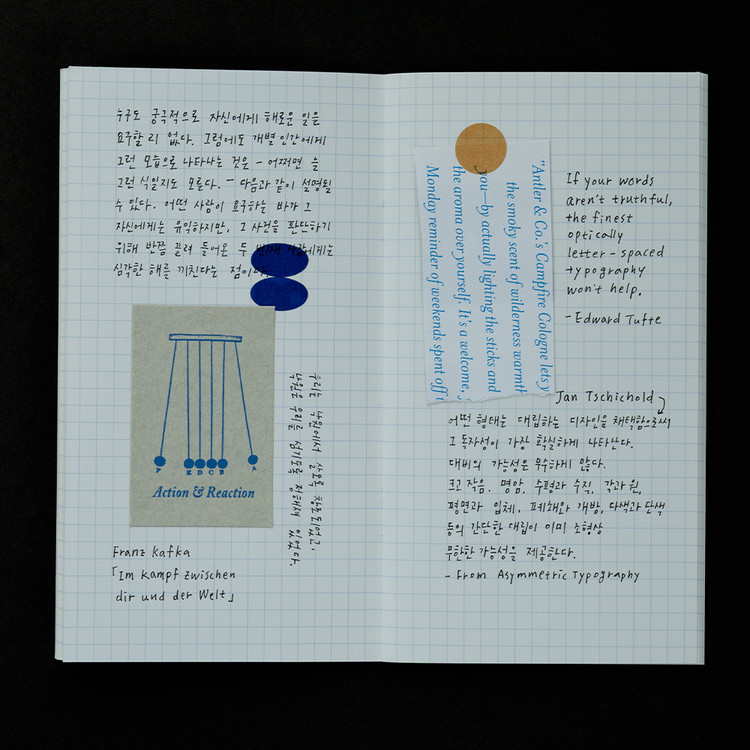 누구도 궁극적으로 자신에게 해로운 일을
요구할 리 없다. 그럼에도 개별 인간에게
그런 모습으로 나타나는 것은 - 어쩌면 늘
그런 식일지도 모른다. - 다음과 같이 설명될
수 있다. 어떤 사람이 요구하는 바가 그
자신에게는 유익하지만, 그 사건을 판단하기
위해 반쯤 끌려 들어온 두 번째 사람에게는
심각한 해를 끼친다는 점이다.
P
E D C B
A
Action & Reaction
우리는 낙원에서 살도록 창조되었고,
낙원은 우리를 섬기도록 정해져 있었다.
Franz Kafka
「Im Kampf zwischen
dir und der Welt」
"Antler & Co.'s Campfire Cologne lets y
the smoky scent of wilderness warmth
you—by actually lighting the sticks and
the aroma over yourself. It's a welcome,
Monday reminder of weekends spent off
If your words
aren't truthful,
the finest
optically
letter-spaced
typography
won't help.
- Edward Tufte
Jan Tschichold
어떤 형태는 대립하는 디자인을 채택함으로써
그 독자성이 가장 확실하게 나타난다.
대비의 가능성은 무수하게 많다.
크고 작음, 명암, 수평과 수직, 각과 원,
평면과 입체, 폐쇄와 개방, 다색과 단색
등의 간단한 대립이 이미 조형상
무한한 가능성을 제공한다.
- From Asymmetric Typography